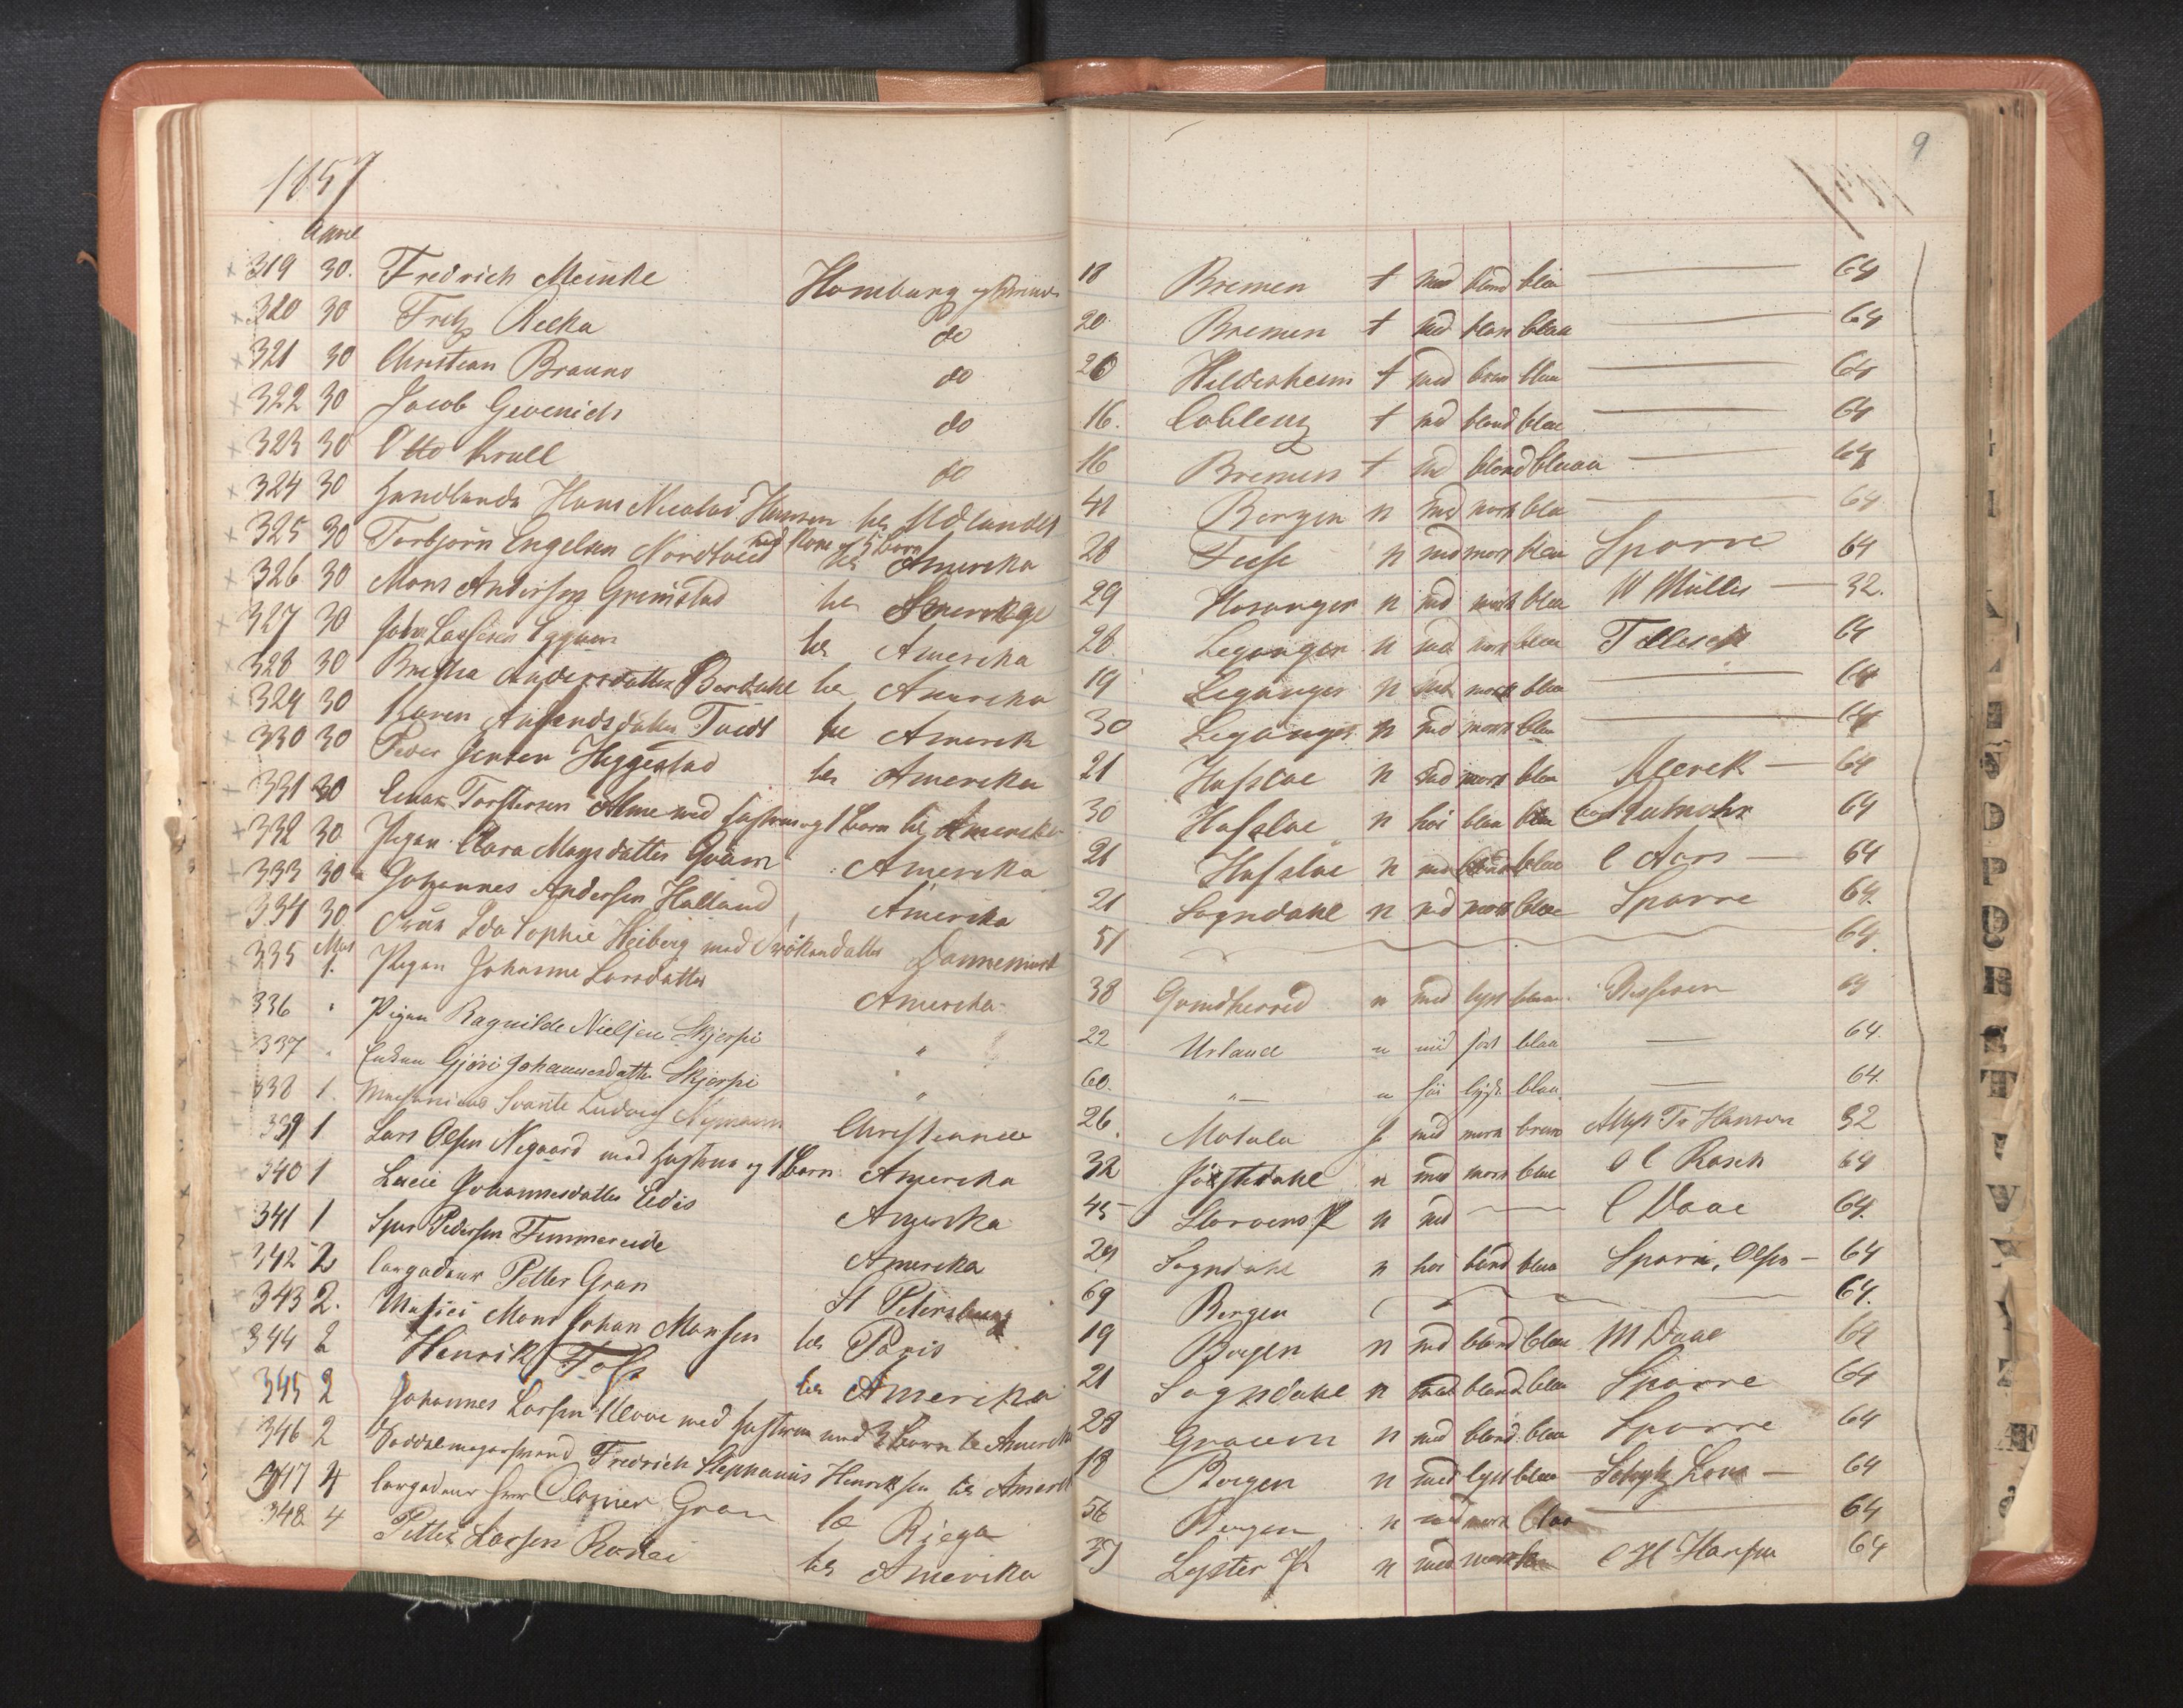 1857
9
April
319 30. Fredrich Meinke Hamburg og Bremen 18 Bremen t med blond blaa 64
320 30 Fritz Recka do 20 Bremen t med blon blaa 64
321 30 Christian Brauns do 26 Hildesheim t med brun blaa 64
322 30 Jacob Gevenich do 16. Coblenz t med blond blaa 64
323 30 Otto Krull do 16 Bremen t med blond blaaa 64
324 30 Handlende Hans Nicolai Hansen til Udlandet 41 Bergen n med mørk blaa 64
325 30 Torbjørn Engelsen Nordtveed med Kone og 5 Børn til Amerika 28 n med mørk blaa Sparre 64
326 30 Mons Anderssen Grimstad til Amerika 29 Hosanger n med mørk blaa W Müller 32.
327 30 John Lassesen Eggum til Amerika 28 Leganger n med mørk blaa 64
328 30 Brytha Andersdatter Berdahl til Amerika 19 Leganger n med mørk blaa 64
329 30 Karen Tvedt til Amerik 30 Leganger n med mørk blaa 64
330 30 Peder Jensen Heggestad til Amerika 21 Hafsloe n med mørk blaa Klerck 64
331 30 Einar Torstensen Alme med Hustru og 1 Barn til Amerika 30 Hafsloe n høi blaa blaa 64
332 30 Pigen Clara Monsdatter Qvam Amerika 21 Hafsloe n med blond blaa C Aars 64
333 30 Johannes Andersen Halland Amerika 21 Sogndahl n med mørk blaa Sparre 64.
334 30 Fruen Ida Sophie Heiberg med Frøkendatter Dannemark 51 64.
Mai
335 1. Pigen Johanne Larsdatter Amerika 38 Qvindherred n med lyst blaa 64
336 " Pigen Ragnilde Nielsen Skjerpi " 22 Urland n mid sort blaa 64.
337 " Enken Gjøri Johannesdatter Skjerpi " 60. " n høi lyst blaa 64.
338 1. Mechanicus Svante Ludvig Nymann Christiania 26. Motala f med mørk brun Hanson 32
339 1 Lars Olsen Negaard med Hustru og 1 Barn Amerika 32 Jostedahl n med mørk blaa O C Rosch 64
340 1 Lucie Johannesdatter Eides Amerika 45 n med C Daae 64.
341 1 Iver Pedersen Timmereide Amerika 24 Sogndahl n høi blond blaa Sparre, Olsen 64
342 2 Cargadeur Petter Gran St Petersburg 69 Bergen 64.
343 2. Musici Mons Johan Monsen til Paris 19 Bergen n med blond blaa M Daae 64
344 2 Henrik Foss til Amerika 21 Sogndahl n med blond blaa Sparre 64
345 2 Johannes Larsen Klove med Hustru med 3 Børn til Amerika 28 Graven n med blond blaa Sparre 64
346 2 Saddelmagersvend Fredrich Stephanus Henriksen til Amerik 18 Bergen n med lyst blaa 64
347 4 Cargadeur Herr Gran til Riega 56 Bergen n med mørk blaa 64
348 4 Petter Larsen til Amerika 37 Lyster P n med mørk C H Hansen 64